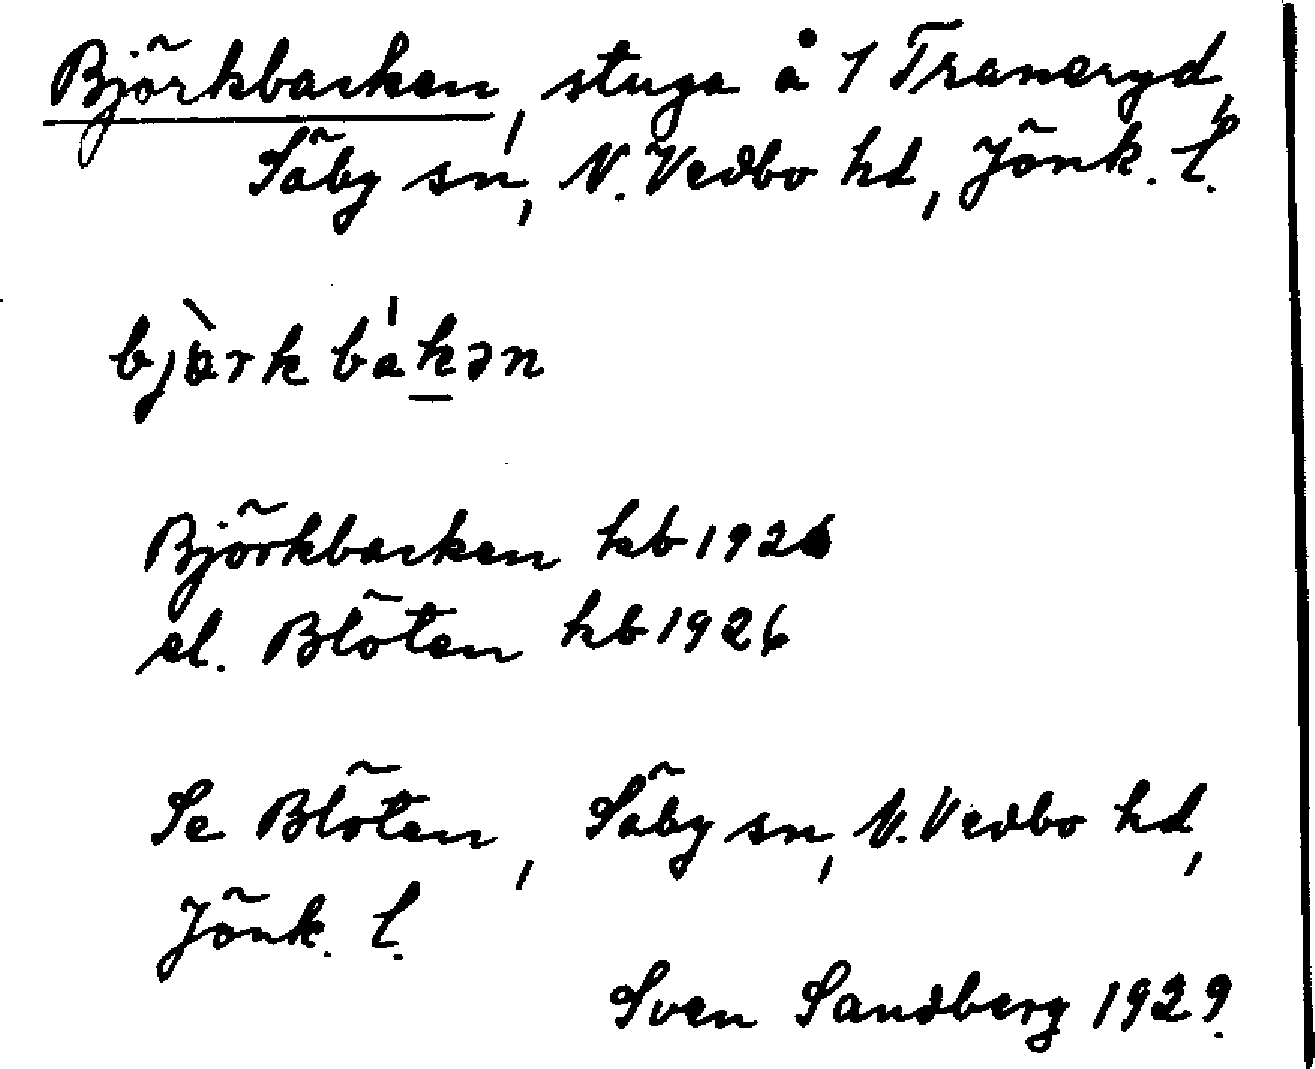 Björkbacken, stuga å 1 Traneryd,
Säby sn, N. Vedbo hd, Jönk. l.
bjàrkbákən
Björkbacken hb 1926
el. Blöten hb 1926
Se Blöten, Säby sn, N. Vedbo hd,
Jönk. l.
Sven Sandberg 1929.